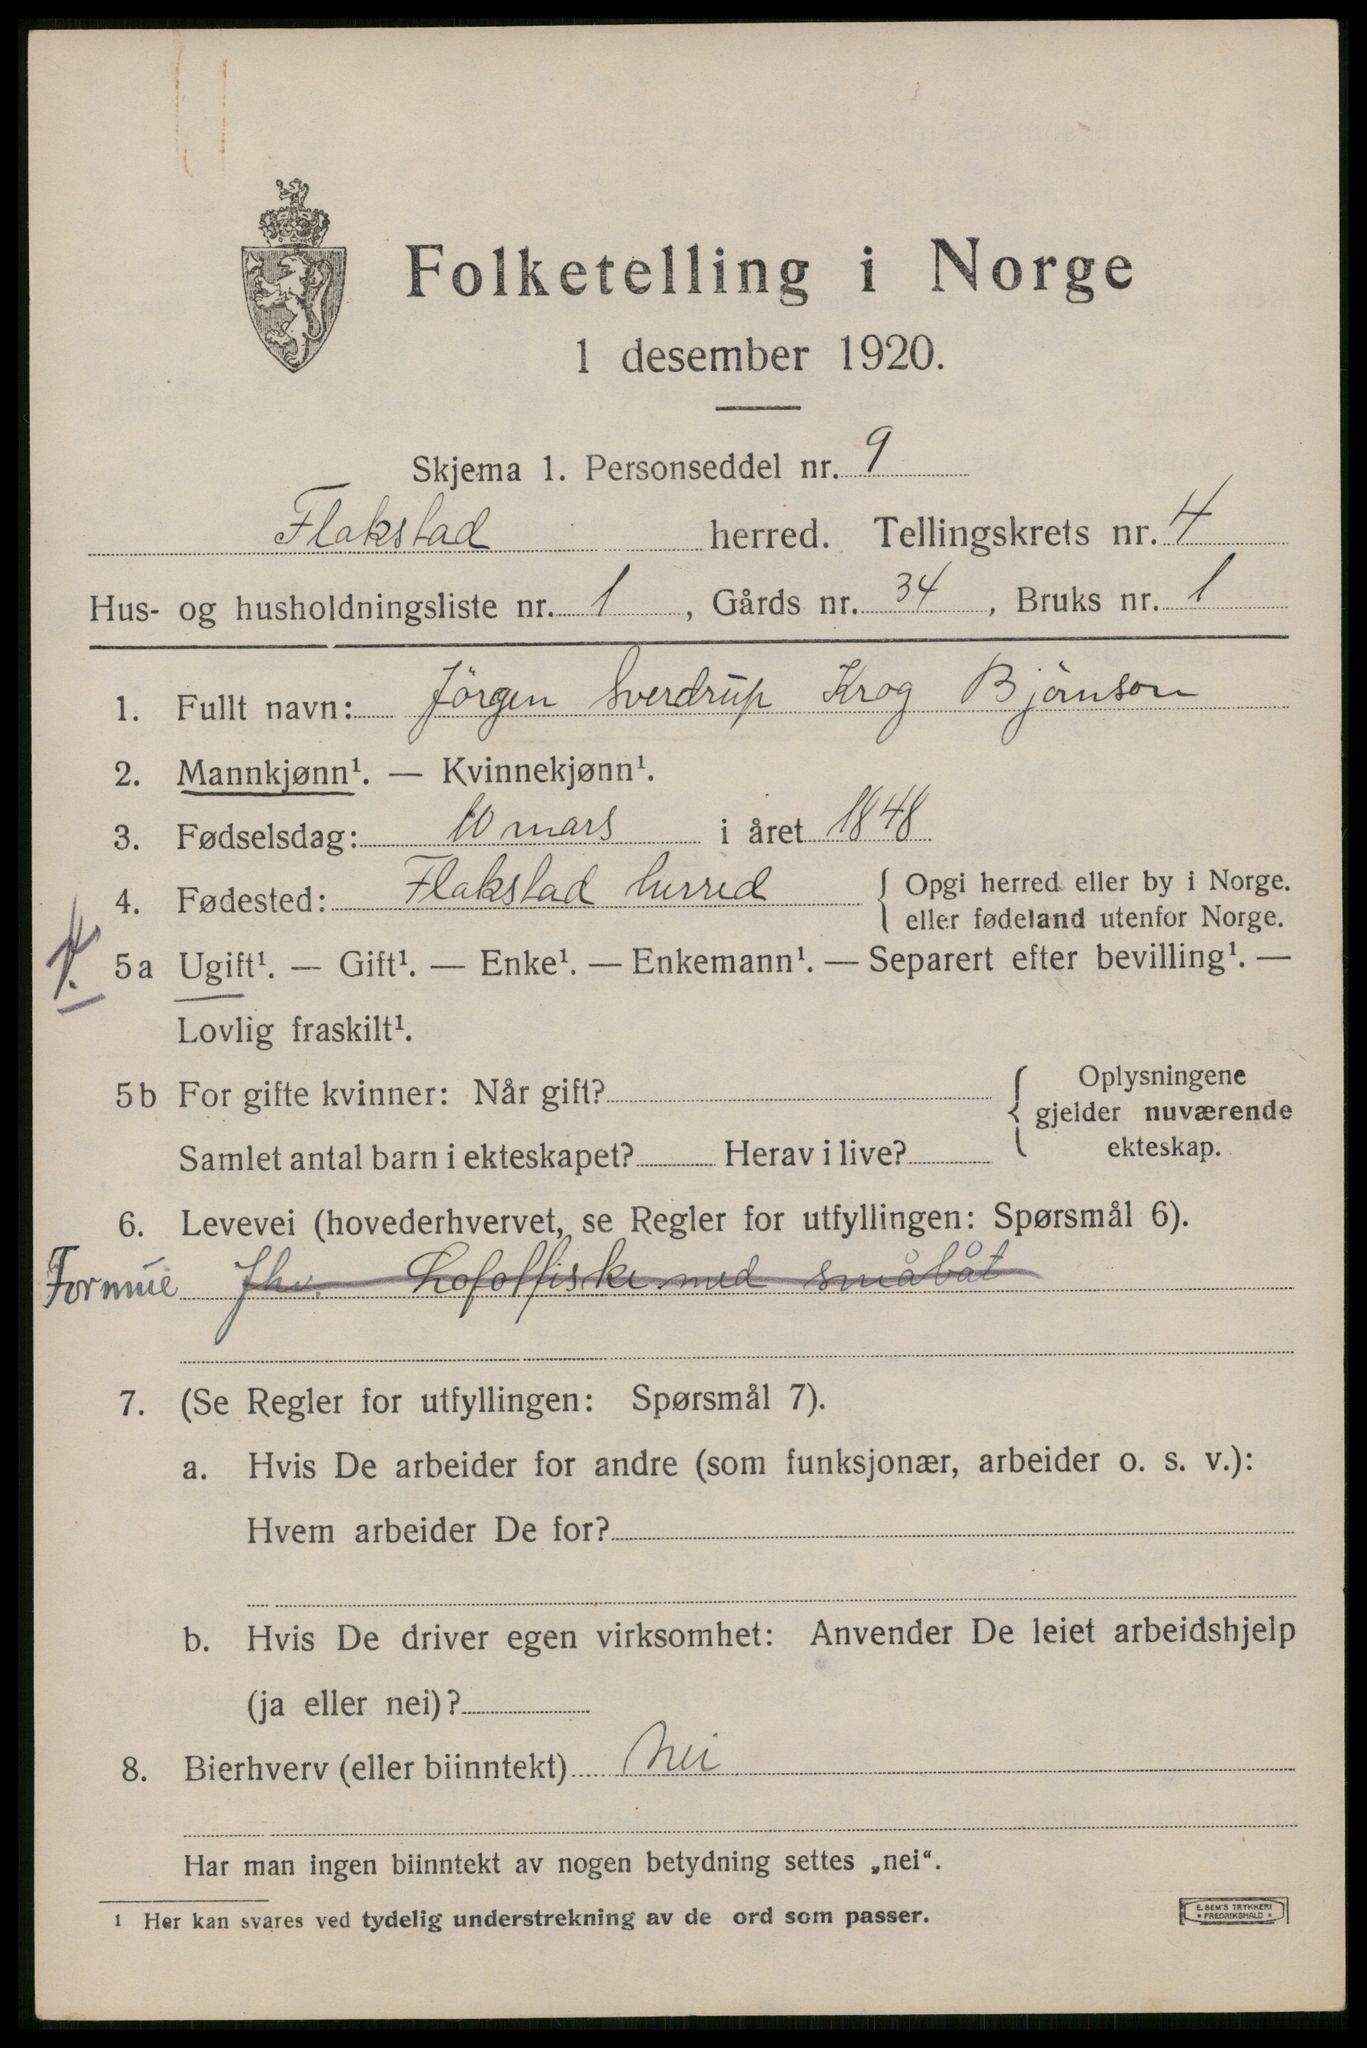 Folketelling i Norge
1 desember 1920.
Skjema 1. Personseddel nr. 9
Flakstad herred. Tellingskrets nr. 4
Hus- og husholdningsliste nr. 1, Gårds nr. 34, Bruks nr. 1
1. Fullt navn: Jörgen Sverdrup Krog Björnson
2. Mannkjønn¹. — Kvinnekjønn¹.
3. Fødselsdag: 10 mars i året 1848
4. Fødested: Flakstad herred { Opgi herred eller by i Norge.
eller fødeland utenfor Norge.
5a Ugift¹. — Gift¹. — Enke¹. — Enkemann¹. — Separert efter bevilling¹. —
Lovlig fraskilt¹.
5b For gifte kvinner: Når gift? { Oplysningene
gjelder nuværende
Samlet antal barn i ekteskapet? Herav i live? ekteskap.
6. Levevei (hovederhvervet, se Regler for utfyllingen: Spørsmål 6).
Formue Lofotfiske med småbåt
7. (Se Regler for utfyllingen: Spørsmål 7).
a. Hvis De arbeider for andre (som funksjonær, arbeider o. s. v.):
Hvem arbeider De for?
b. Hvis De driver egen virksomhet: Anvender De leiet arbeidshjelp
(ja eller nei)?
8. Bierhverv (eller biinntekt) Nei
Har man ingen biinntekt av nogen betydning settes „nei“.
¹ Her kan svares ved tydelig understrekning av de ord som passer.
E. SEM'S TRYKKERI
* FREDRIKSHALD *